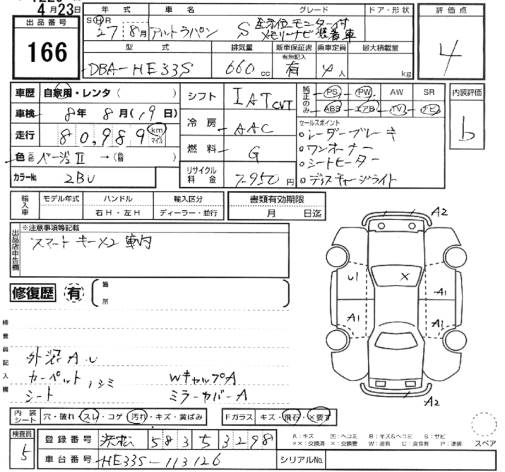 4月23日
出品番号
166
年式 車名 グレード ドア・形状
27年8月 アルトラパン S 全方位モニター付 メモリーナビ装着車
型式 排気量 新車保証書 乗車定員 最大積載量
有無記入
DBA-HE33S 660cc 有 4人 kg
評価点
4
車歴 自家用・レンタ( )
車検 8年8月(19日)
走行 80,989 km マイル
色 元色 ベージュII →(替色 )
カラーNo. ZBU
シフト IAT CVT
冷房 AAC
燃料 G
リサイクル料金 7,950円
純正のみ PS PW AW SR
ABS エアB TV ナビ
セールスポイント
レーダーブレーキ
ワンオーナー
シートヒーター
ディスチャージライト
内装評価
b
輸入車 モデル年式 ハンドル 輸入区分 書類有効期限
年 右H・左H ディーラー・並行 月 日迄
出品店申告欄
※注意事項等記載
スマートキーx2 車内
修復歴 有
箇所
検査員記入欄
外装A・U
カーペット、シミ WキャルプA
シート ミラーカバーA
A2
U1
X
A1
A1
A1
A2
内装シート 穴・破れ・スレ・コゲ・汚れ・キズ・黄ばみ Fガラス キズ・飛石・×要す
検査員 5
登録番号 浜松 583 そ 3298
車台番号 HE33S-113126
シリアルNo.
A:キズ
S:サビ
スペア